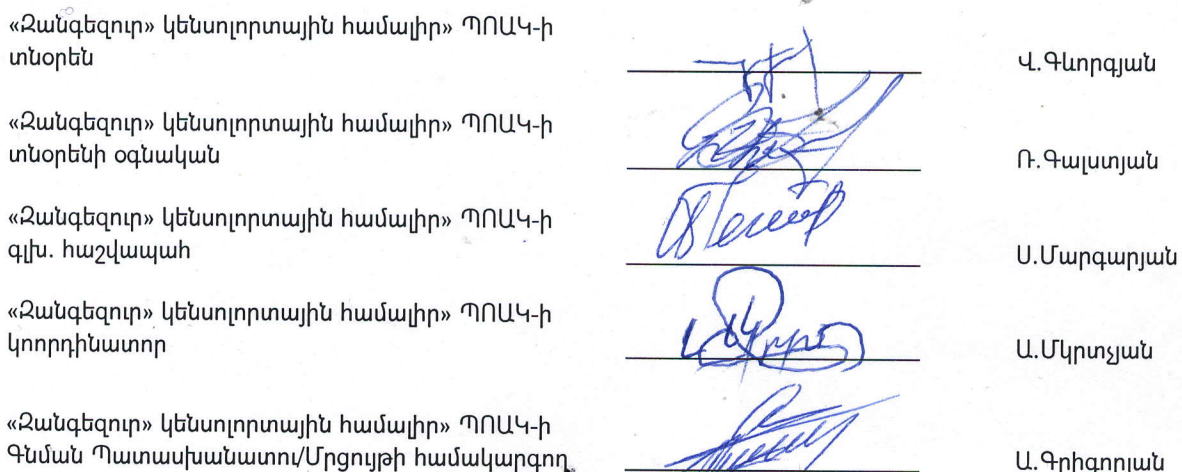 «Զանգեզուր» կենսոլորտային համալիր» ՊՈԱԿ-ի
տնօրեն
Վ.Գևորգյան
«Զանգեզուր» կենսոլորտային համալիր» ՊՈԱԿ-ի
տնօրենի օգնական
Ռ.Գալստյան
«Զանգեզուր» կենսոլորտային համալիր» ՊՈԱԿ-ի
գլխ. հաշվապահ
Ս.Մարգարյան
«Զանգեզուր» կենսոլորտային համալիր» ՊՈԱԿ-ի
կոորդինատոր
Ա.Մկրտչյան
«Զանգեզուր» կենսոլորտային համալիր» ՊՈԱԿ-ի
Գնման Պատասխանատու/Մրցույթի համակարգող
Ա.Գրիգորյան